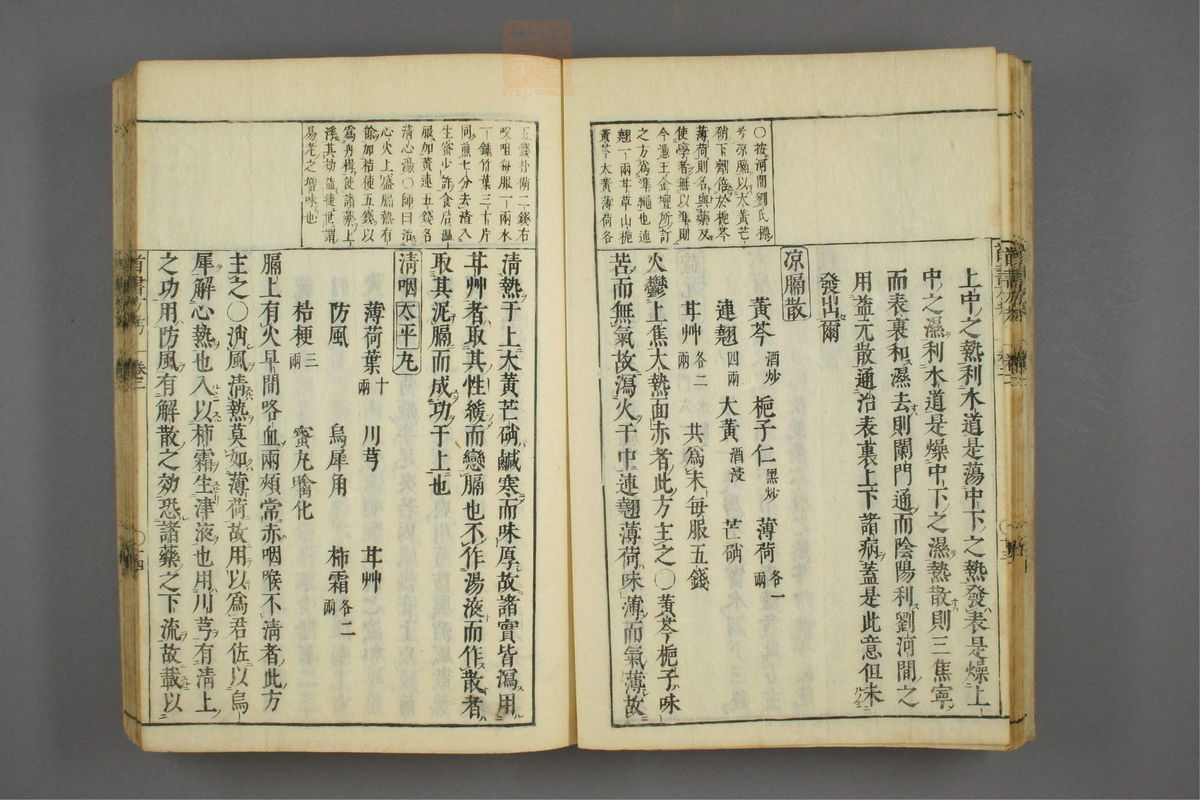 上中之熱利水道是蕩中下之熱發表是燥上
中之濕利水道是燥中下之濕熱散則三焦寧
而表裏和濕去則闌門通而陰陽利劉河間之
用益元散通治表裏上下諸病蓋是此意但未
發出爾
凉膈散
黃芩酒炒 梔子仁黑炒 薄荷各一兩
連翹四兩 大黃酒浸 芒硝
甘艸各二兩 共爲末每服五錢
火鬱上焦大熱面赤者此方主之〇黃芩梔子味
苦而無氣故瀉火于中連翹薄荷味薄而氣薄故
〇按河間劉氏
兮凉膈以大黃芒
硝下劑倍於梔芩
薄荷則名與藥及
使學者無以準則
今遵王金壇所訂
之方爲準繩也連
翹一兩甘草山梔
黃芩大黃薄荷各
清熱于上大黃芒硝鹹寒而味厚故諸實皆瀉用
甘艸者取其性緩而戀膈也不作湯液而作散者
取其泥膈而成功于上也
清咽太平丸
薄荷葉十兩 川芎 甘艸
防風 烏犀角 柿霜各二兩
桔梗三兩 蜜丸噙化
膈上有火早間咯血兩頰常赤咽喉不清者此方
主之〇消風清熱莫如薄荷故用以爲君佐以烏
犀解心熱也入以柿霜生津液也用川芎有清上
之功用防風有解散之効恐諸藥之下流故載以
五錢朴硝二錢右
㕮咀每服一兩水
一鍾竹葉三十片
同煎七分去渣入
生蜜少許食后溫
服加黃連五錢名
清心湯〇師曰治
心火上盛膈熱有
餘加桔梗五錢以
爲舟楫使諸藥上
溪其劫益捷世謂
易老之增味也
卷三
〇十四